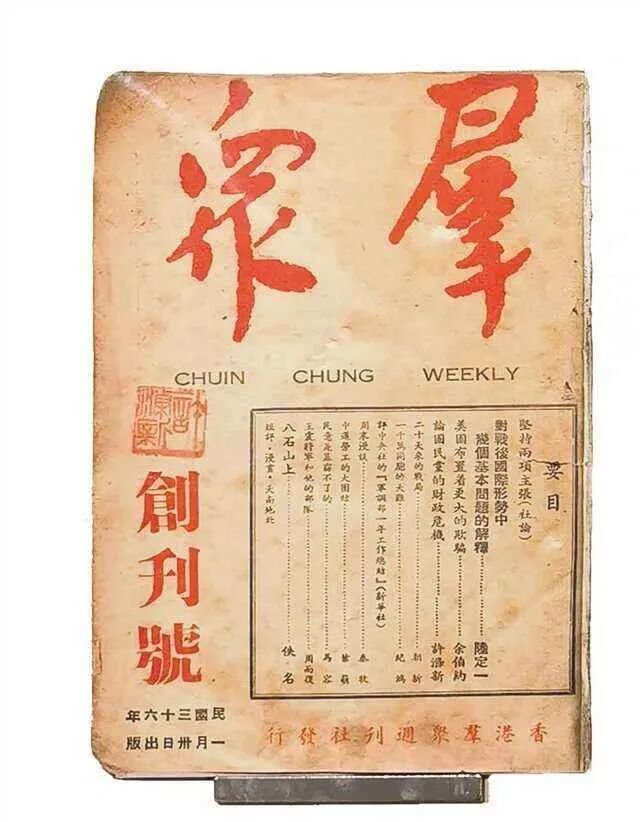 羣眾
CHUIN CHUNG WEEKLY
要目
堅持兩項主張(社論)
對戰後國際形勢中
幾個基本問題的解釋……陸定一
美國布置着更大的欺騙……余伯約
論國民黨的財政危機……許滌新
二十天來的戰局……朝新
一千萬同胞的大難……紀鴻
評中央社的『軍調部一年工作總結』(新華社)
周末漫談……秦牧
勞工的大團結……
民意是 不了的……馬容
王震將軍和他的部隊……周而復
八石山上……佚名
短評・漫畫・天南地北
創刊號
民國三十六年
一月卅日出版
香港羣眾週刊社發行